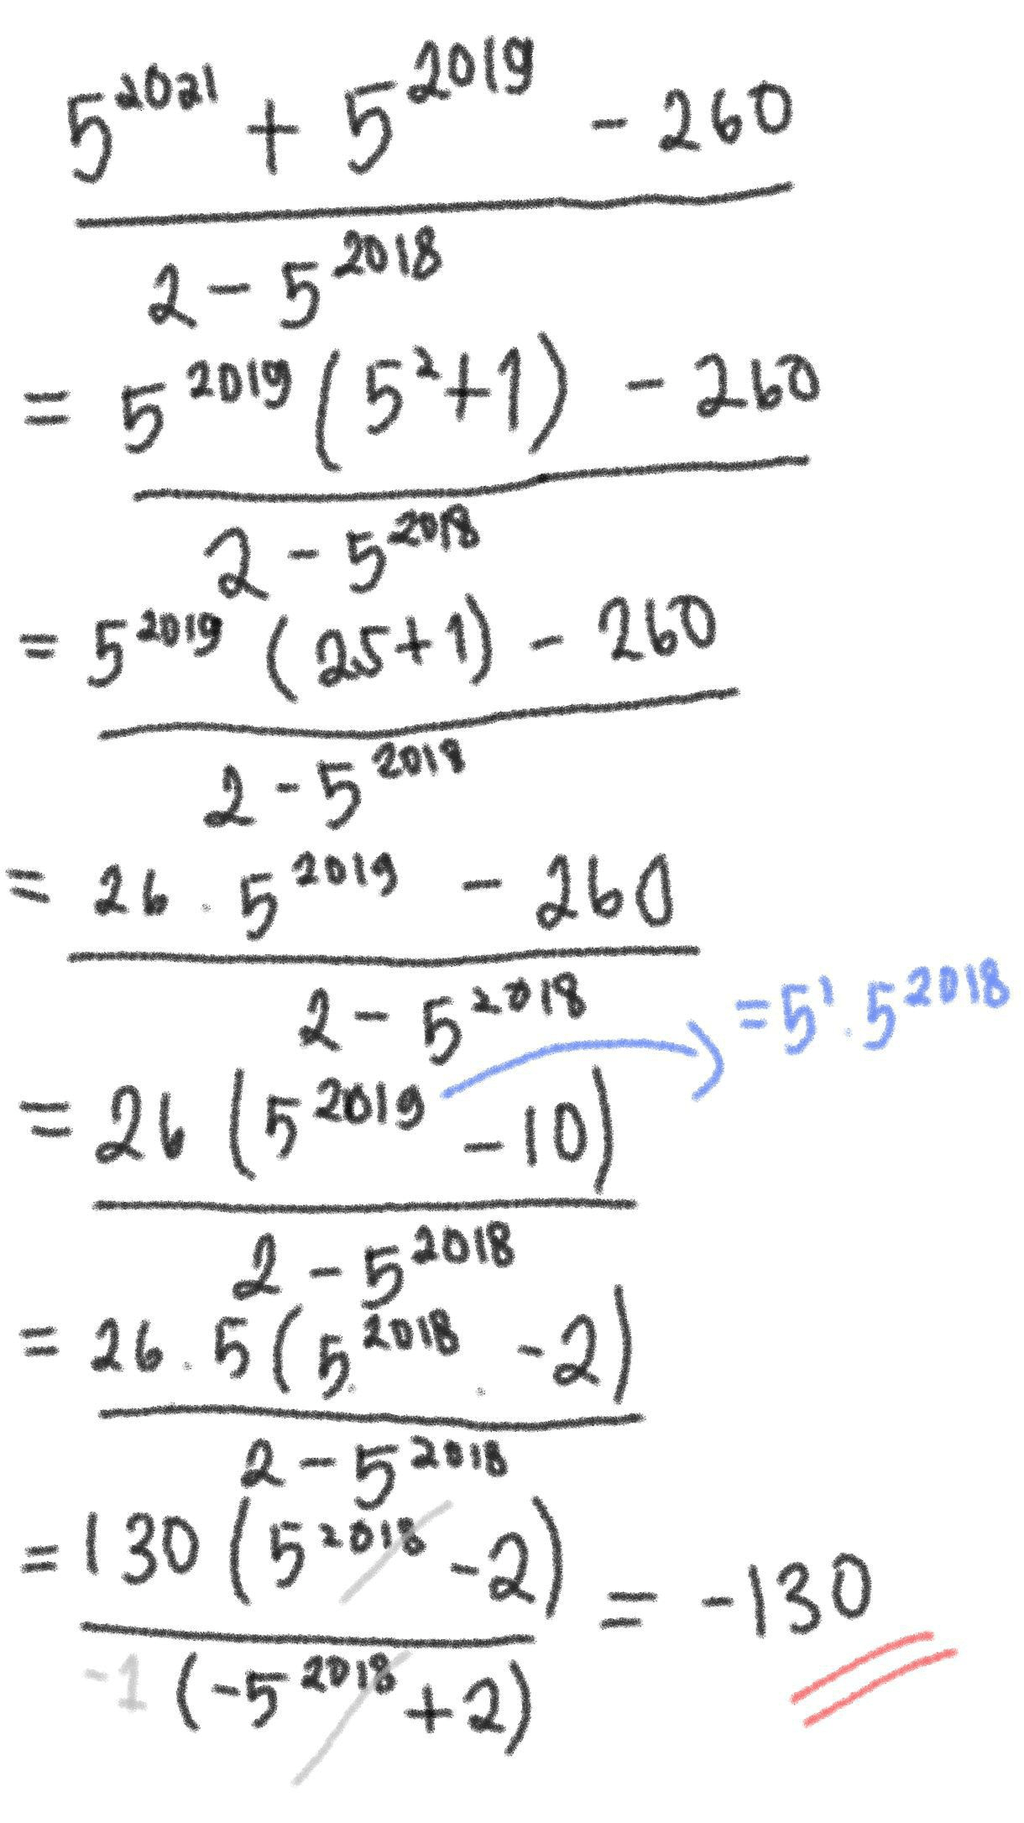 5^2021 + 5^2019 - 260
2 - 5^2018
= 5^2019 (5^2+1) - 260
2 - 5^2018
= 5^2019 (25+1) - 260
2 - 5^2018
= 26 . 5^2019 - 260
2 - 5^2018
= 5^1 . 5^2018
= 26 (5^2019 - 10)
2 - 5^2018
= 26 . 5 (5^2018 - 2)
2 - 5^2018
= 130 (5^2018 - 2) = -130
-1 (-5^2018 + 2)